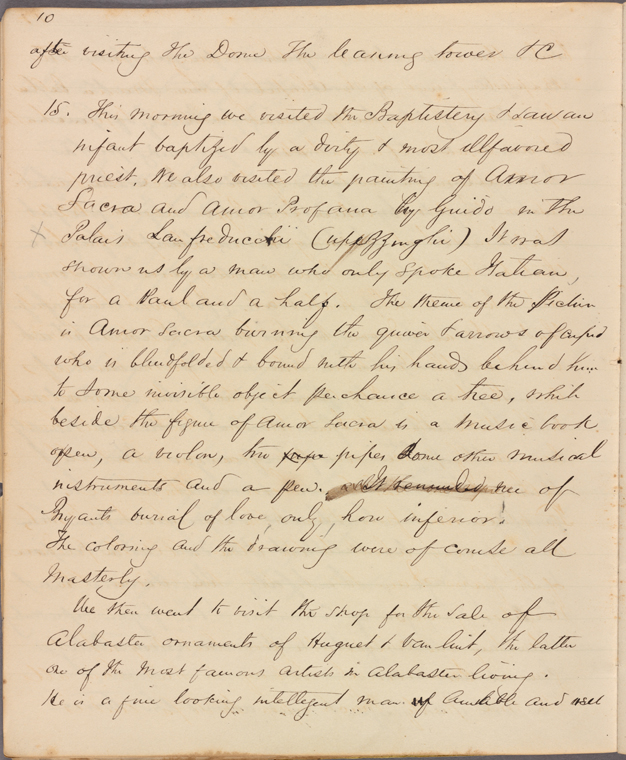 10
after visiting the Dome The leaning tower &C
15. This morning we visited the Baptistery & saw an
infant baptized by a dirty & most illfavored
priest. We also visited the painting of Amor
Sacra and Amor Profana by Guido in the
X Palais Lanfreducchi (uppezzinghi) It was
shown us by a man who only spoke Italian,
for a Paul and a half. The theme of the Picture
is Amor Sacra burning the quiver & arrows of cupid
who is blindfolded & bound with his hands behind him
to some invisible object perchance a tree, while
beside the figure of Amor Sacra is a music book
open, a violon, two pipes some other musical
instruments and a pen. It reminded me of
Bryants burial of love, only, how inferior.
The coloring and the drawing were of course all
Masterly.
We then went to visit the shop for the sale of
Alabaster ornaments of Huguet & Van lint, the latter
one of the most famous artists in Alabaster living.
He is a fine looking intelligent man of Amiable and